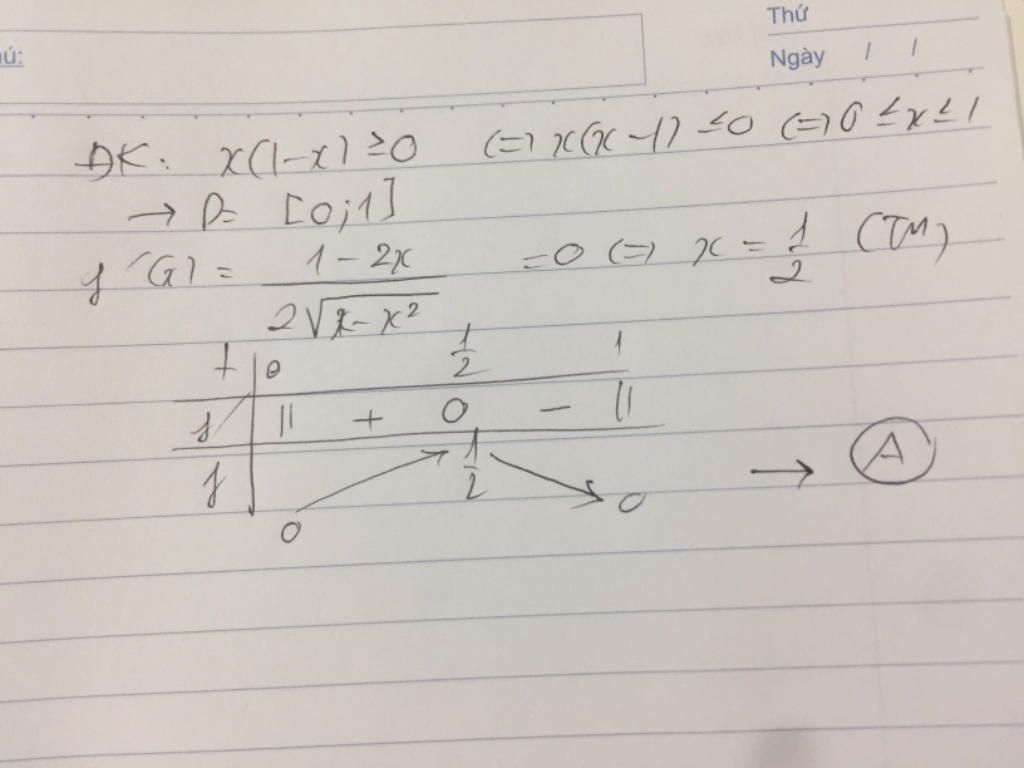 Thứ
ú:
Ngày / /
ĐK: x(1-x) ≥0 (=) x(x-1) ≤0 (=) 0 ≤x≤1
→ D= [0;1]
y'(x) = \frac{1-2x}{2\sqrt{x-x^2}} =0 (=) x = \frac{1}{2} (TM)
x 0 \frac{1}{2} 1
y' || + 0 - ||
y 0 \frac{1}{2} 0 → A